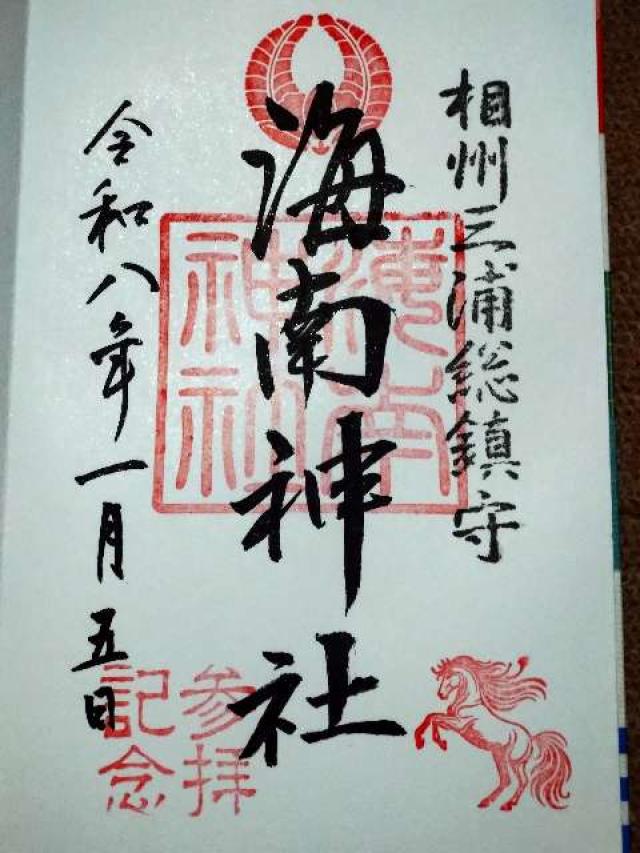 相州三浦総鎮守
海南神社
海南神社
令和八年一月五日
参拝
記念